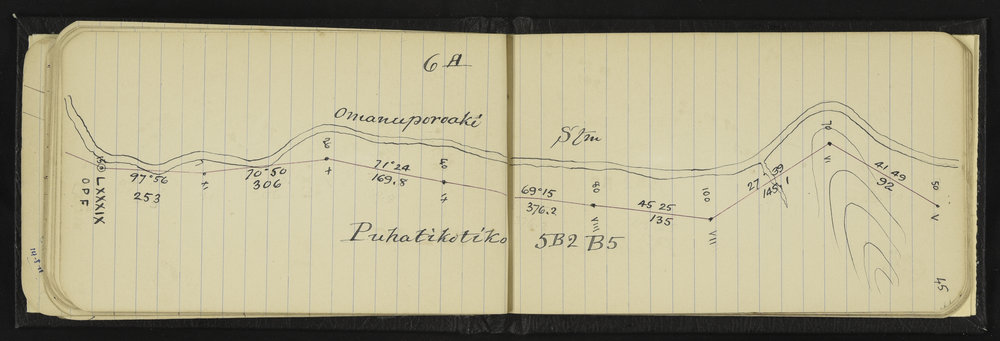 6A
Omanuporoaki Stm
LXXXIX
O P F
97°56
253
70°50
306
71°24
169.8
69°15
376.2
80
VIII
45 25
135
100
VII
27° 39
145.1
70
VI
41 49
92
50
V
Puhatikotiko 5B2 B5